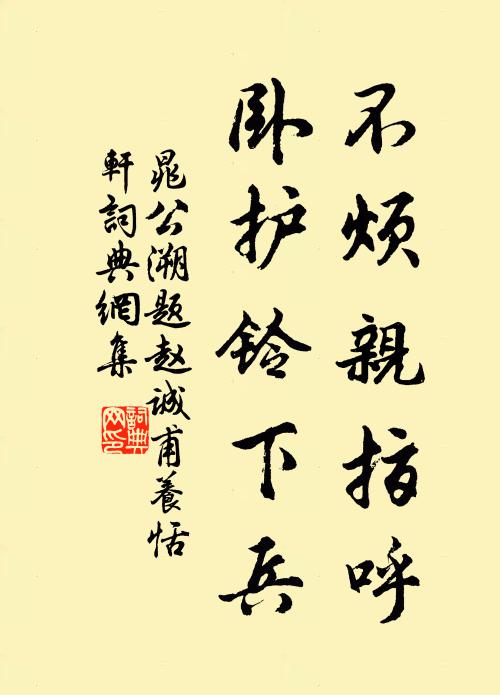 不烦親指呼
卧护鈴下兵
晁公溯题赵诚甫養恬
軒詞典網集
詞典网印